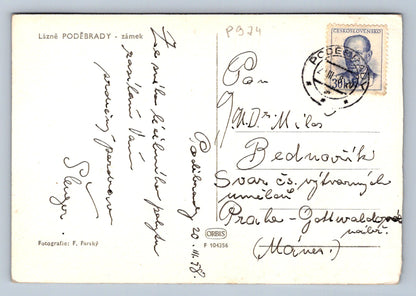 Lázně PODĚBRADY - zámek
P974
Ze milo léčebného pobytu
zasílám Vám
srdečný pozdrav
Poděbrady 20.III.58.
Fotografie: F. Forský
ORBIS
P 104356
ČESKOSLOVENSKO
PODĚBRADY
Pan
JUDr Miloš
Bednařík
Svaz čs. výtvarných
umělců
Praha - Gottwaldovo
nábř.
(Mánes.)